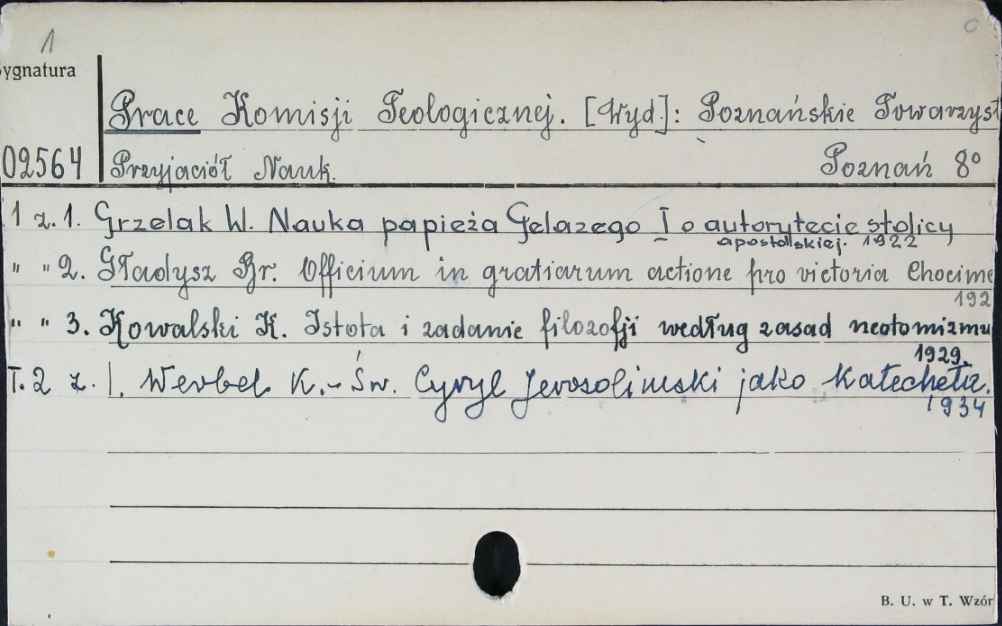 1
ygnatura
Prace Komisji Teologicznej. [Wyd.]: Poznańskie Towarzyst
02564 Przyjaciół Nauk. Poznań 8°
1 z. 1. Grzelak W. Nauka papieża Gelazego I o autorytecie stolicy
apostolskiej. 1922
" " 2. Gładysz Br. Officium in gratiarum actione pro victoria Chocime
192
" " 3. Kowalski K. Istota i zadanie filozofji według zasad neotomizmu
1929.
T. 2 z. 1. Werbel K. - Św. Cyryl Jerosolimski jako katecheta.
1934
B. U. w T. Wzór